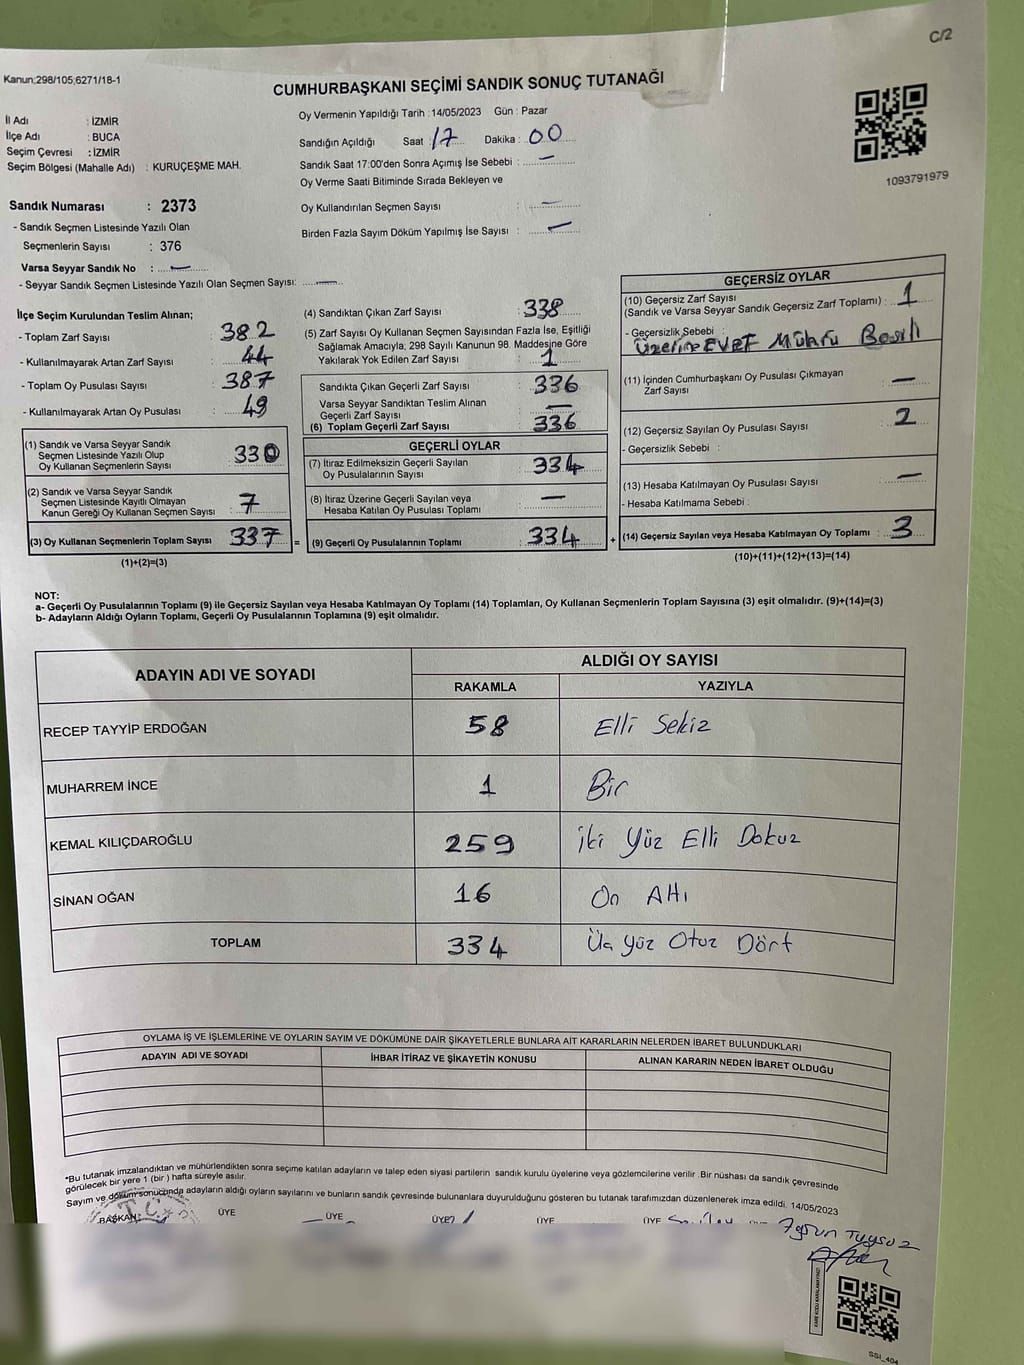 C/2
Kanun:298/105,6271/18-1
CUMHURBAŞKANI SEÇİMİ SANDIK SONUÇ TUTANAĞI
İl Adı : İZMİR
İlçe Adı : BUCA
Seçim Çevresi : İZMİR
Seçim Bölgesi (Mahalle Adı) : KURUÇEŞME MAH.
Oy Vermenin Yapıldığı Tarih : 14/05/2023 Gün : Pazar
Sandığın Açıldığı Saat 17 Dakika : 00
Sandık Saat 17:00'den Sonra Açımış İse Sebebi : —
Oy Verme Saati Bitiminde Sırada Bekleyen ve
Oy Kullandırılan Seçmen Sayısı : —
Birden Fazla Sayım Döküm Yapılmış İse Sayısı : —
1093791979
Sandık Numarası : 2373
- Sandık Seçmen Listesinde Yazılı Olan
Seçmenlerin Sayısı : 376
Varsa Seyyar Sandık No : —
- Seyyar Sandık Seçmen Listesinde Yazılı Olan Seçmen Sayısı: —
İlçe Seçim Kurulundan Teslim Alınan;
- Toplam Zarf Sayısı : 382
- Kullanılmayarak Artan Zarf Sayısı : 44
- Toplam Oy Pusulası Sayısı : 387
- Kullanılmayarak Artan Oy Pusulası : 49
(1) Sandık ve Varsa Seyyar Sandık
Seçmen Listesinde Yazılı Olup
Oy Kullanan Seçmenlerin Sayısı : 330
(2) Sandık ve Varsa Seyyar Sandık
Seçmen Listesinde Kayıtlı Olmayan
Kanun Gereği Oy Kullanan Seçmen Sayısı : 7
(3) Oy Kullanan Seçmenlerin Toplam Sayısı 337 =
(1)+(2)=(3)
(4) Sandıktan Çıkan Zarf Sayısı : 338
(5) Zarf Sayısı Oy Kullanan Seçmen Sayısından Fazla İse, Eşitliği
Sağlamak Amacıyla, 298 Sayılı Kanunun 98. Maddesine Göre
Yakılarak Yok Edilen Zarf Sayısı : 1
Sandıkta Çıkan Geçerli Zarf Sayısı : 336
Varsa Seyyar Sandıktan Teslim Alınan
Geçerli Zarf Sayısı : —
(6) Toplam Geçerli Zarf Sayısı : 336
GEÇERLİ OYLAR
(7) İtiraz Edilmeksizin Geçerli Sayılan
Oy Pusulalarının Sayısı : 334
(8) İtiraz Üzerine Geçerli Sayılan veya
Hesaba Katılan Oy Pusulası Toplamı : —
(9) Geçerli Oy Pusulalarının Toplamı : 334 +
GEÇERSİZ OYLAR
(10) Geçersiz Zarf Sayısı
(Sandık ve Varsa Seyyar Sandık Geçersiz Zarf Toplamı) : 1
- Geçersizlik Sebebi :
Üzerine EVET Mührü Basılı
(11) İçinden Cumhurbaşkanı Oy Pusulası Çıkmayan
Zarf Sayısı : —
(12) Geçersiz Sayılan Oy Pusulası Sayısı : 2
- Geçersizlik Sebebi :
(13) Hesaba Katılmayan Oy Pusulası Sayısı : —
- Hesaba Katılmama Sebebi :
(14) Geçersiz Sayılan veya Hesaba Katılmayan Oy Toplamı : 3
(10)+(11)+(12)+(13)=(14)
NOT:
a- Geçerli Oy Pusulalarının Toplamı (9) ile Geçersiz Sayılan veya Hesaba Katılmayan Oy Toplamı (14) Toplamları, Oy Kullanan Seçmenlerin Toplam Sayısına (3) eşit olmalıdır. (9)+(14)=(3)
b- Adayların Aldığı Oyların Toplamı, Geçerli Oy Pusulalarının Toplamına (9) eşit olmalıdır.
ADAYIN ADI VE SOYADI
ALDIĞI OY SAYISI
RAKAMLA YAZIYLA
RECEP TAYYİP ERDOĞAN 58 Elli Sekiz
MUHARREM İNCE 1 Bir
KEMAL KILIÇDAROĞLU 259 İki Yüz Elli Dokuz
SİNAN OĞAN 16 On Altı
TOPLAM 334 Üç Yüz Otuz Dört
OYLAMA İŞ VE İŞLEMLERİNE VE OYLARIN SAYIM VE DÖKÜMÜNE DAİR ŞİKAYETLERLE BUNLARA AİT KARARLARIN NELERDEN İBARET BULUNDUKLARI
ADAYIN ADI VE SOYADI İHBAR İTİRAZ VE ŞİKAYETİN KONUSU ALINAN KARARIN NEDEN İBARET OLDUĞU
*Bu tutanak imzalandıktan ve mühürlendikten sonra seçime katılan adayların ve talep eden siyasi partilerin sandık kurulu üyelerine veya gözlemcilerine verilir. Bir nüshası da sandık çevresinde
görülecek bir yere 1 (bir ) hafta süreyle asılır.
Sayım ve döküm sonucunda adayların aldığı oyların sayılarını ve bunların sandık çevresinde bulunanlara duyurulduğunu gösteren bu tutanak tarafımızdan düzenlenerek imza edildi. 14/05/2023
T.C.
BAŞKAN ÜYE ÜYE ÜYE ÜYE ÜYE
SSI_404